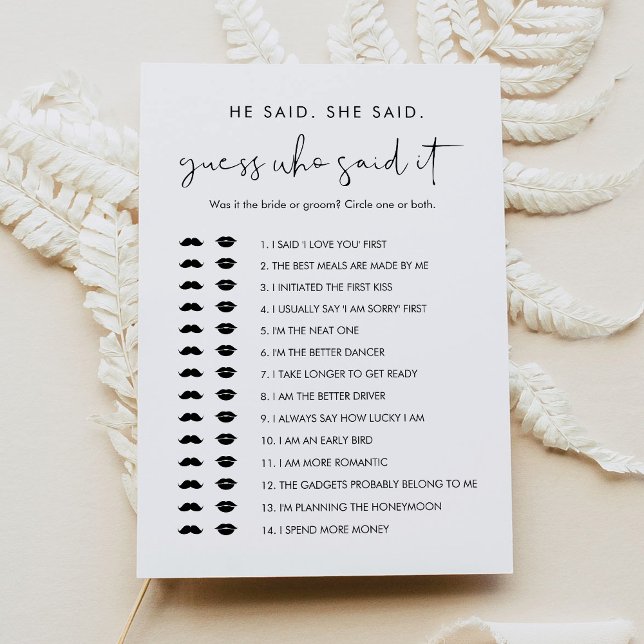 HE SAID. SHE SAID.
guess who said it
Was it the bride or groom? Circle one or both.
1. I SAID 'I LOVE YOU' FIRST
2. THE BEST MEALS ARE MADE BY ME
3. I INITIATED THE FIRST KISS
4. I USUALLY SAY 'I AM SORRY' FIRST
5. I'M THE NEAT ONE
6. I'M THE BETTER DANCER
7. I TAKE LONGER TO GET READY
8. I AM THE BETTER DRIVER
9. I ALWAYS SAY HOW LUCKY I AM
10. I AM AN EARLY BIRD
11. I AM MORE ROMANTIC
12. THE GADGETS PROBABLY BELONG TO ME
13. I'M PLANNING THE HONEYMOON
14. I SPEND MORE MONEY